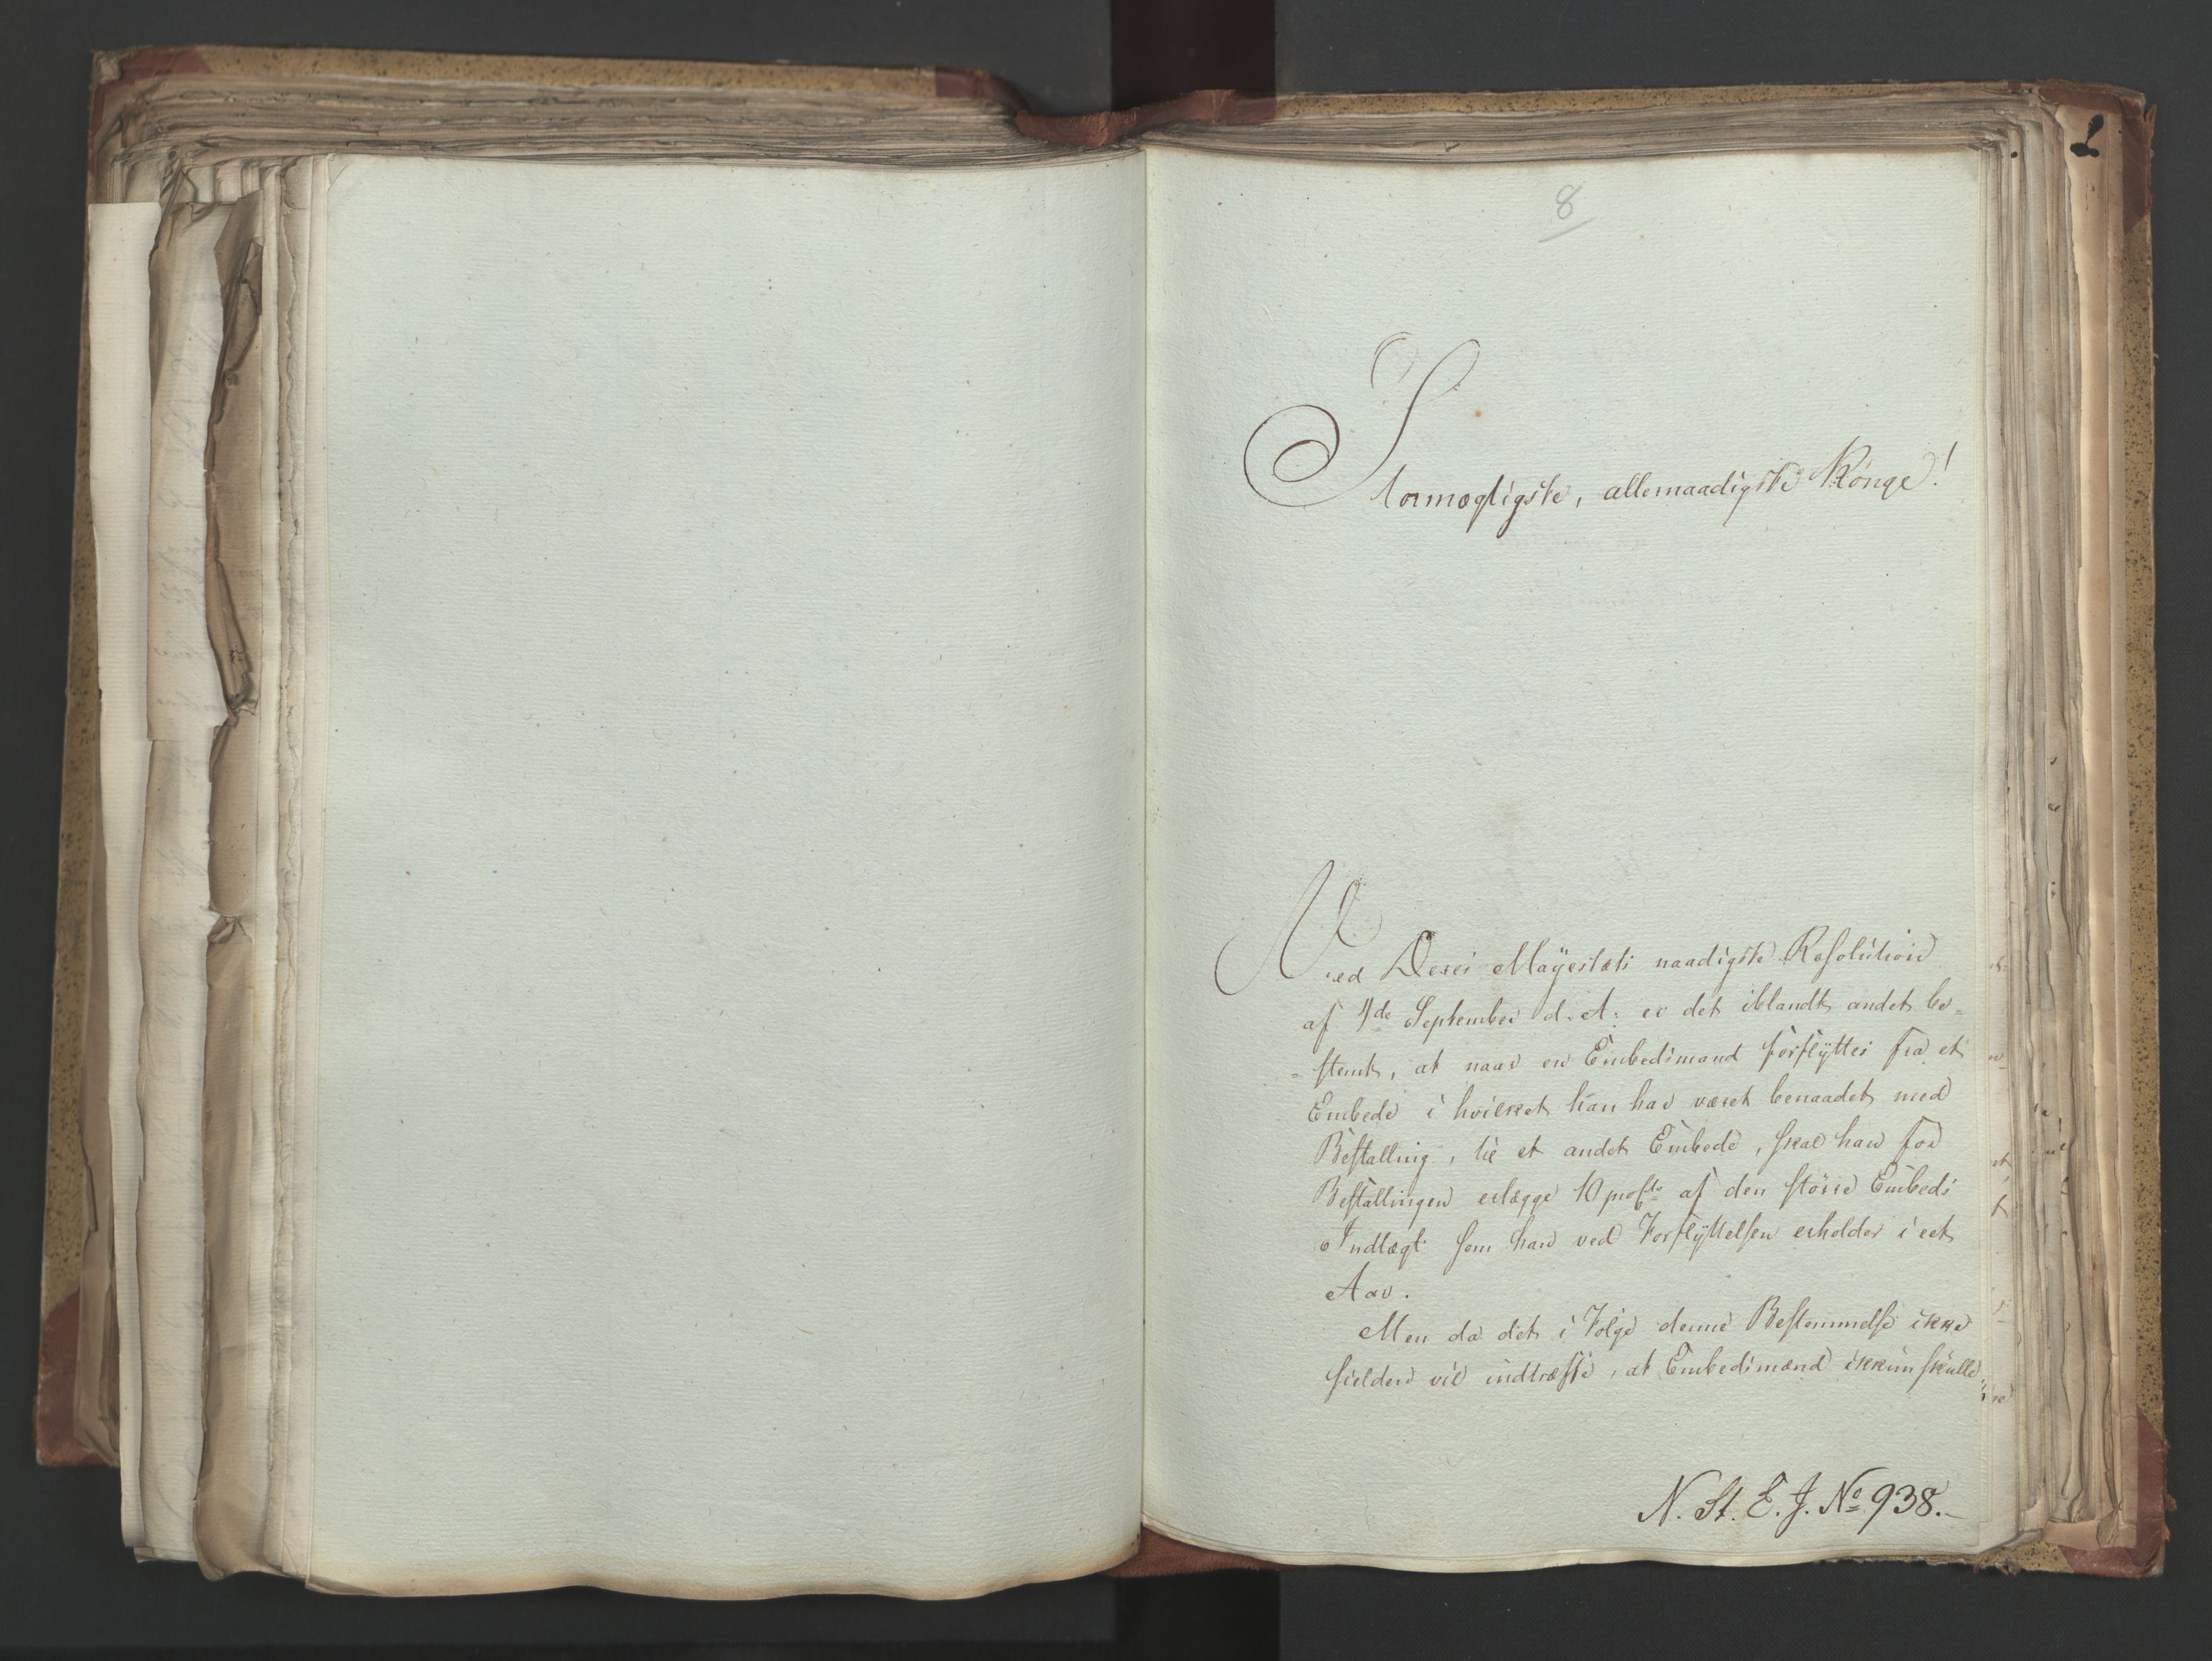 8
Stormægtigste, allernaadigste Konge!
Ved Deres Mayestæts naadigste Resolution
af 4de September d. A. er det iblandt andet be-
-stemt, at naar en Embedsmand forflyttes fra et
Embede i hvilket han har været benaadet med
Bestalling, til et andet Embede, skal han for
Bestallingen erlægge 10 proCto af den större Embeds
Indtægt som han ved Forflyttelsen erholder i eet
Aar.
Men da det i Folge denne Bestemmelse ikke
sielden vil indtræffe, at Embedsmænd ikkun skulle
N. St. E. J. No 938.-